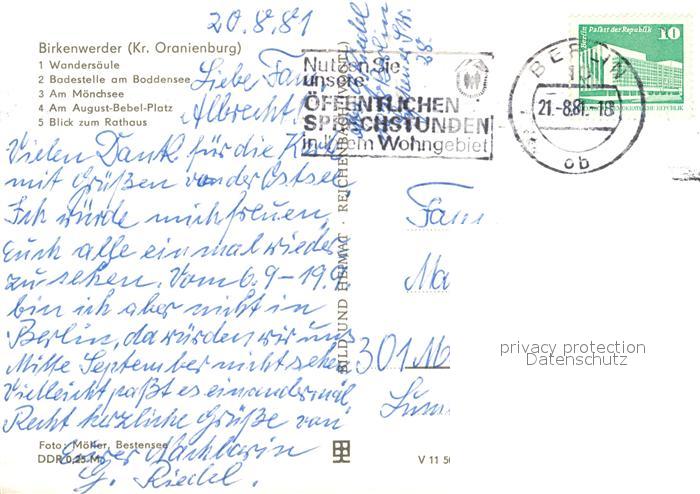 20.8.81
Birkenwerder (Kr. Oranienburg)
1 Wandersäule
2 Badestelle am Boddensee
3 Am Mönchsee
4 Am August-Bebel-Platz
5 Blick zum Rathaus
Liebe Fam.
Albrecht!
Vielen Dank für die Karte
mit Grüßen von der Ostsee.
Ich würde mich freuen,
Euch alle einmal wieder
zu sehen. Vom 6.9–19.9.
bin ich aber nicht in
Berlin, da würden wir uns
Mitte September nicht sehen
Vielleicht paßt es ein andermal
Recht herzliche Grüße von
Eurer Nachbarin
G. Riedel.
Foto: Möller, Bestensee
DDR 0,25 M
BILD UND HEIMAT · REICHENBACH (VOGTL)
V 11 50
Nutzen Sie
unsere
ÖFFENTLICHEN
SPRECHSTUNDEN
in Ihrem Wohngebiet
BERLIN
21.-8.81.-18
ob
Berlin, Palast der Republik
10
DDR
Fam
Ma
301 M
privacy protection
Datenschutz
28.